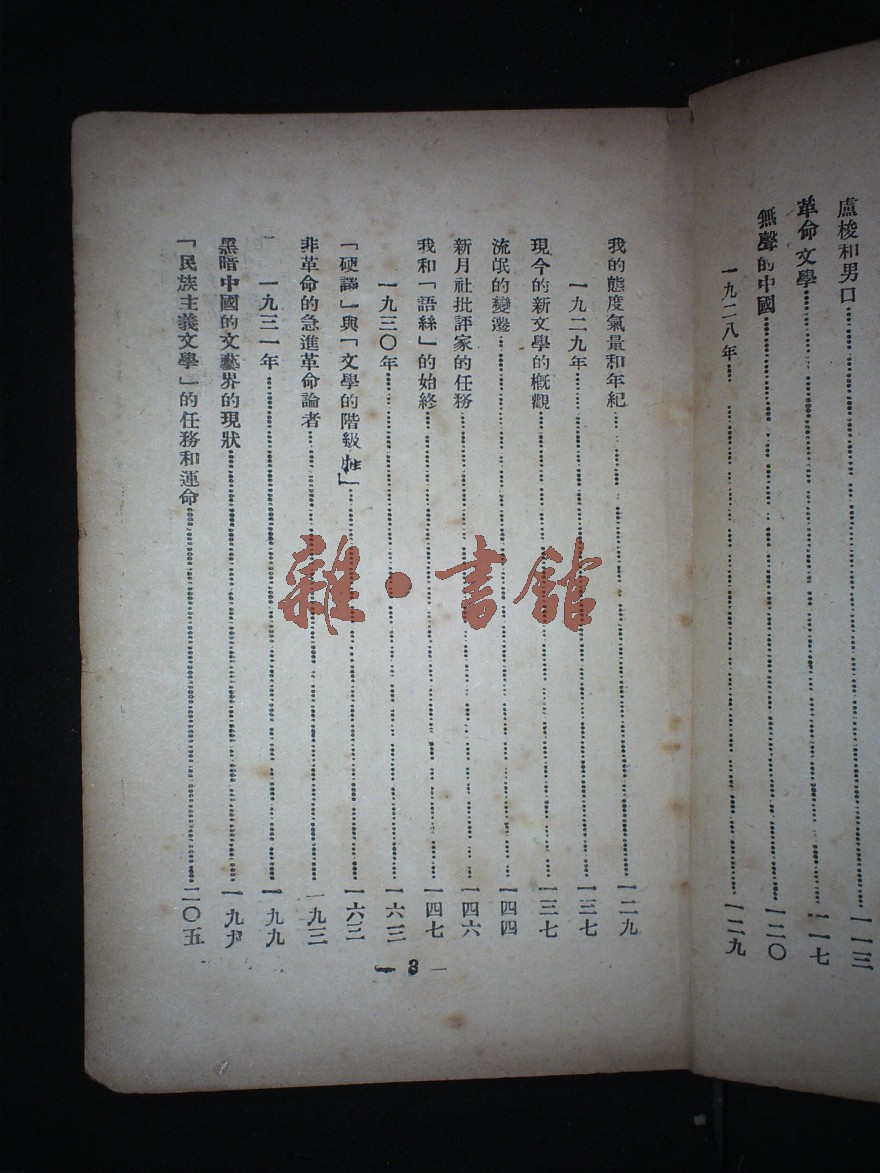 盧梭和男口……一一三
革命文學……一一七
無聲的中國……一二〇
一九二八年……一二九
我的態度氣量和年紀……一二九
一九二九年……一三七
現今的新文學的概觀……一三七
流氓的變遷……一四四
新月社批評家的任務……一四六
我和「語絲」的始終……一四七
一九三〇年……一六三
「硬譯」與「文學的階級性」……一六三
非革命的急進革命論者……一九三
一九三一年……一九九
黑暗中國的文藝界的現狀……一九九
「民族主義文學」的任務和運命……二〇五
— 3 —
雜·書館